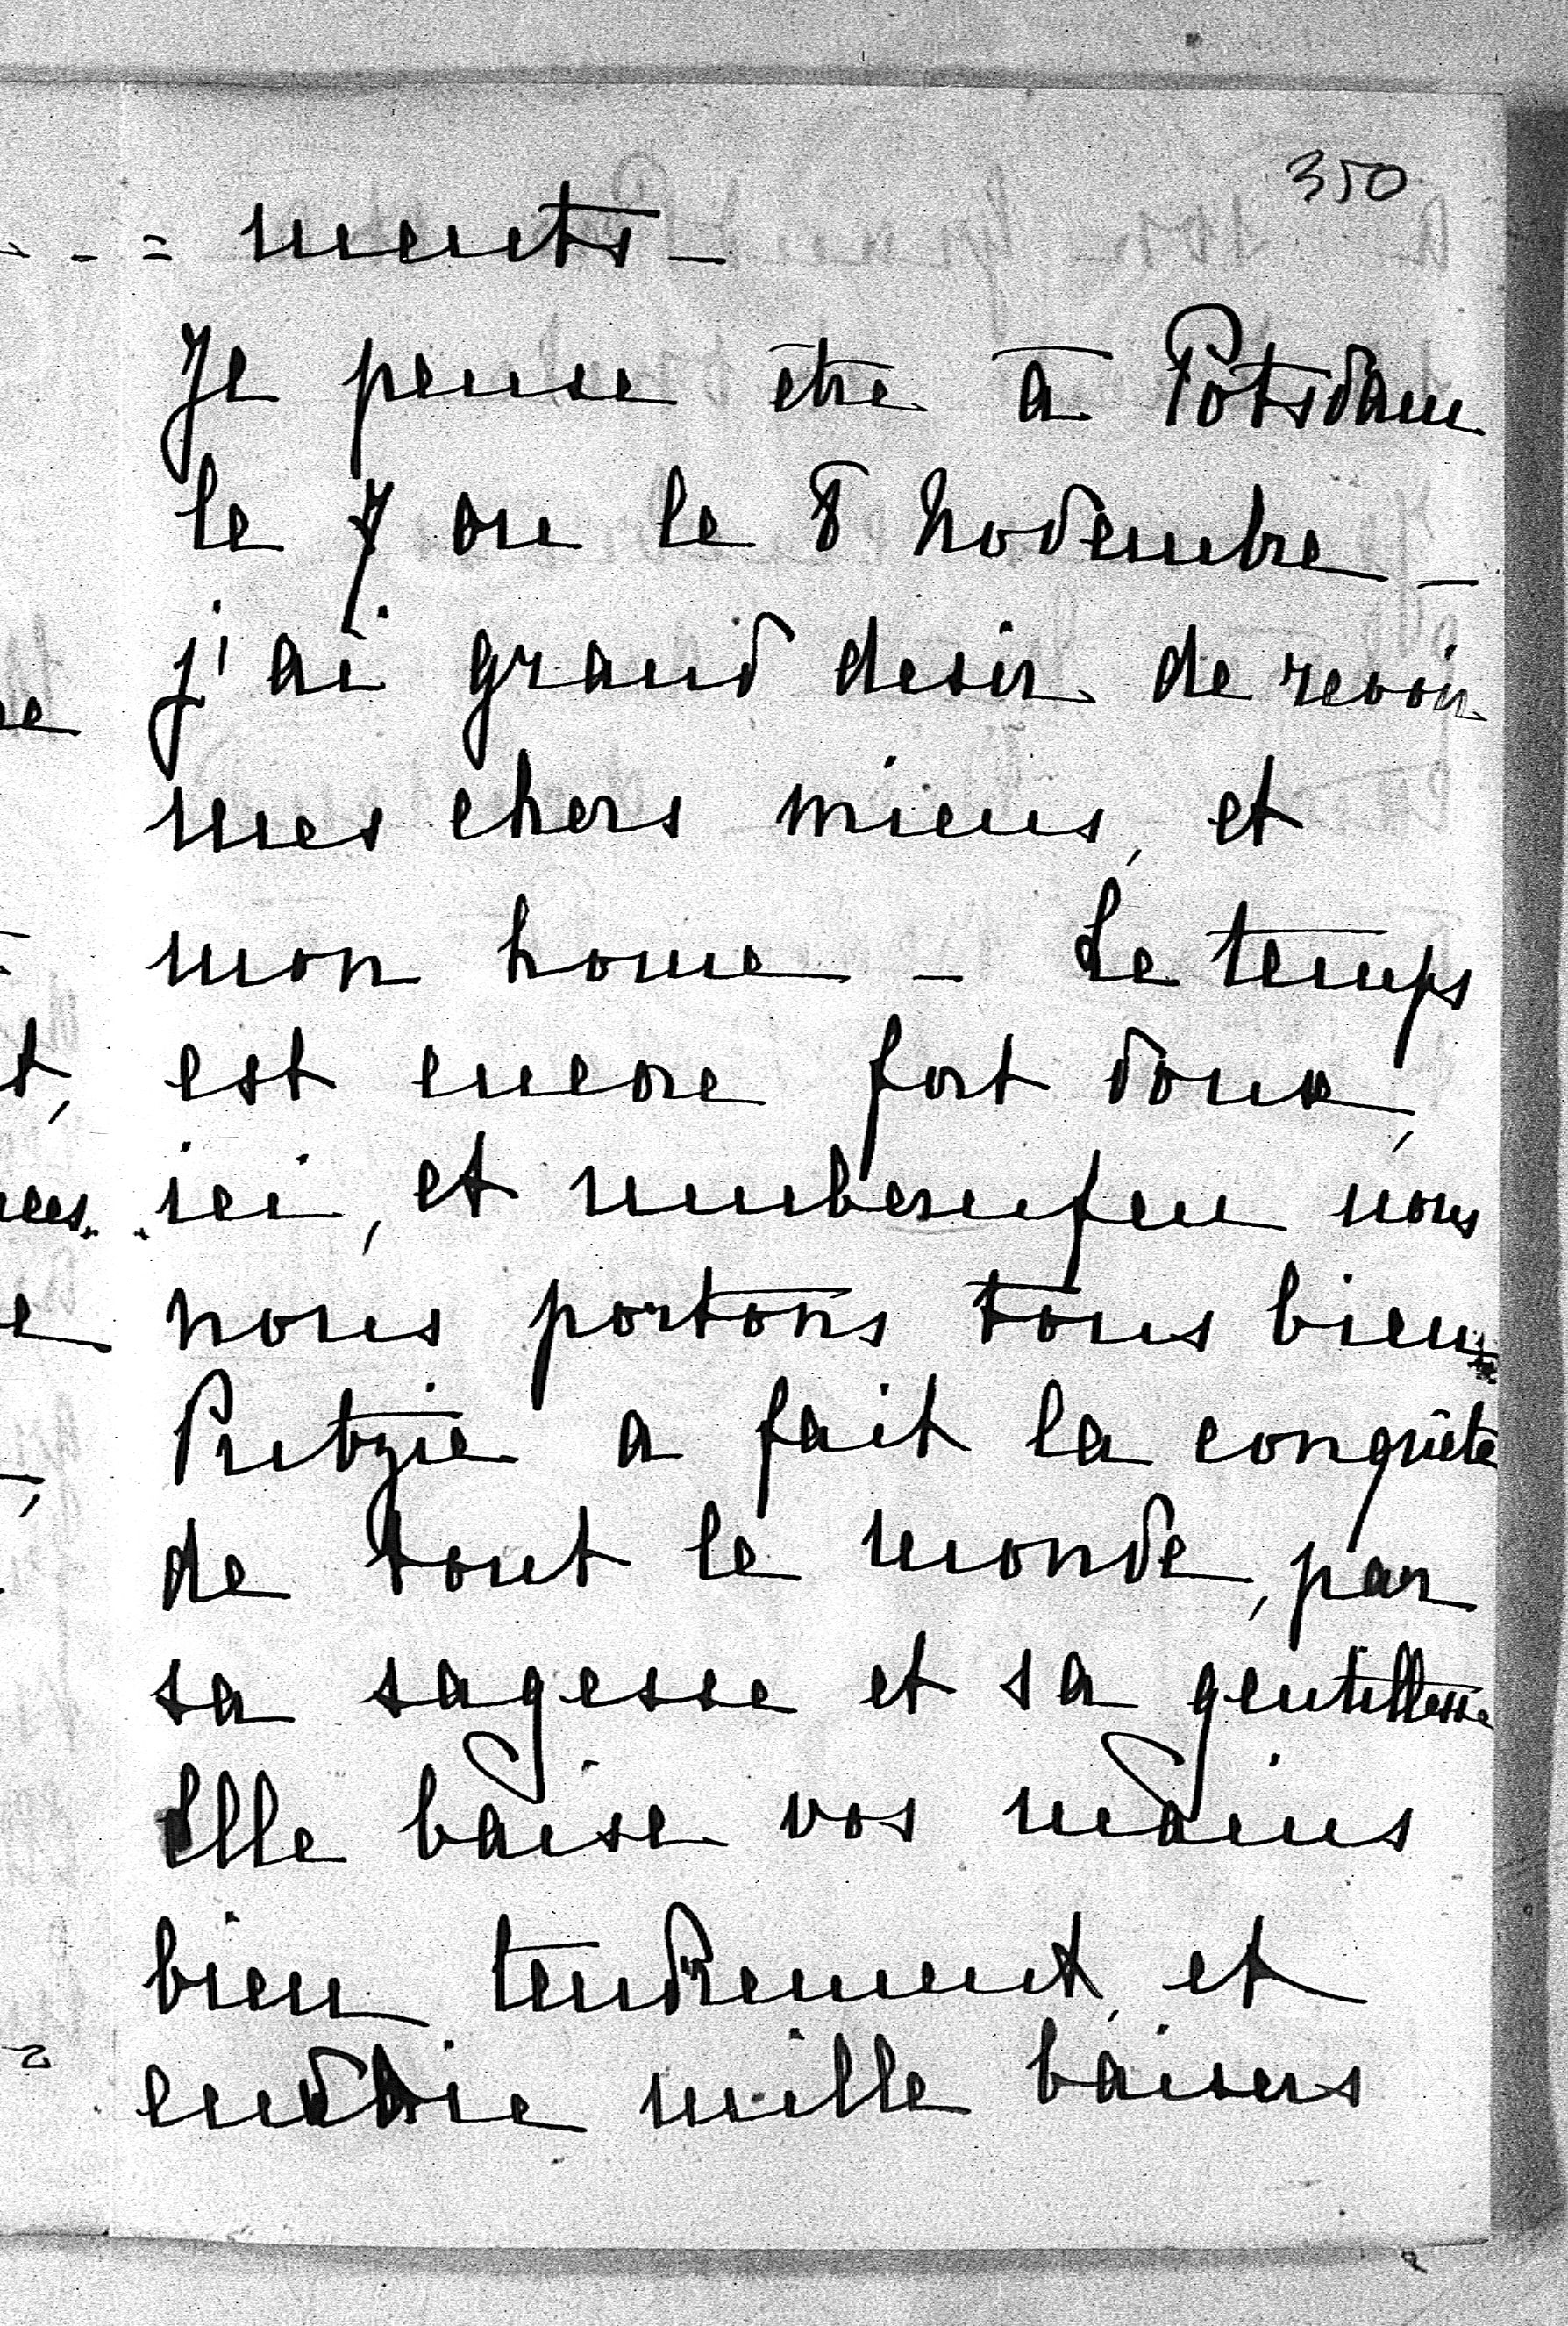 350
= ments -
Je pense etre à Potsdam
le 7 ou le 8 Novembre -
j'ai grand desir de revoir
mes chers miens, et
mon home - Le temps
est encore fort doux,
ici, et unberufen nous
nous portons tous bien
Putzie a fait la conquête
de tout le monde, par
sa sagesse et sa gentillesse
Elle baise vos mains
bien tendrement, et
envoie mille baisers